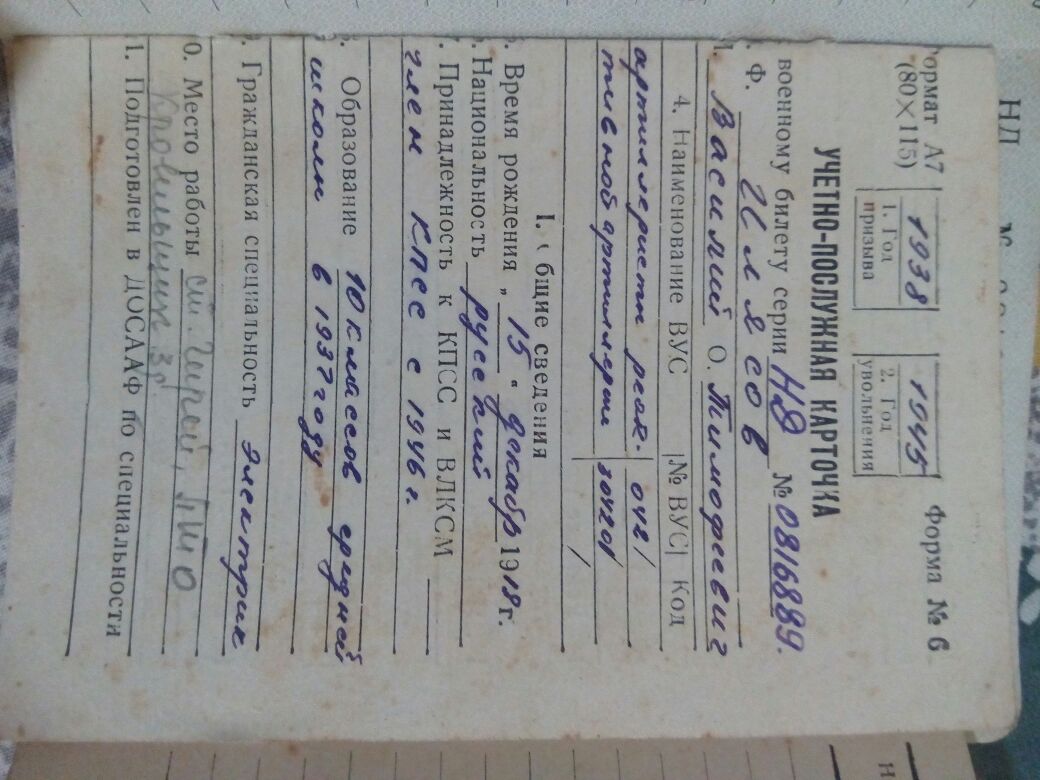 Формат А7
(80×115)
Форма № 6
1938
1. Год
призыва
1945
2. Год
увольнения
УЧЕТНО-ПОСЛУЖНАЯ КАРТОЧКА
военному билету серии НД № 0816889.
Ф. Илясов
Василий О. Тимофеевич
4. Наименование ВУС № ВУС Код
артиллерист реак- 042
тивной артиллерии
I. бщие сведения
Время рождения „15" декабр 1918 г.
Национальность русский
Принадлежность к КПСС и ВЛКСМ
член КПСС с 1946 г.
Образование 10 классов средней
школы в 1937 году
Гражданская специальность электрик
0. Место работы ст. Гирей,
1. Подготовлен в ДОСААФ по специальности
НЛ